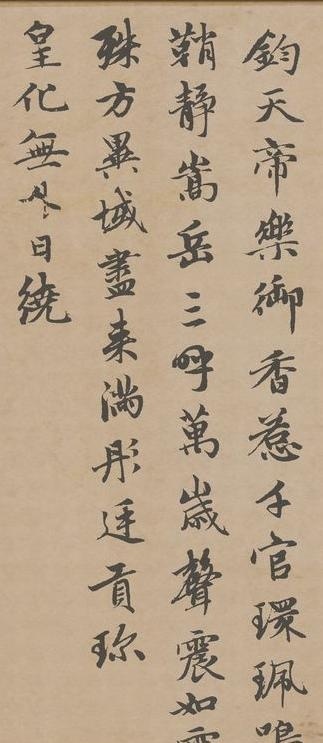 鈞天帝樂御香惹千官環珮鳴
鞘靜嵩岳三呼萬歲聲震如
殊方異域盡来滿彤廷貢珎
皇化無日繞